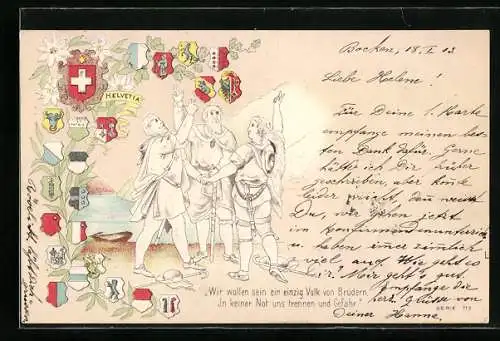 Bocken, 18. I 03
Liebe Helene!
Für Deine l. Karte
empfange meinen bes
ten Dank dafür. Gerne
hätte ich Dir früher
geschrieben, aber konnte
leider nicht, denn weisst
Du, wir gehen jetzt
im Konfirmandenunterricht
u. haben immer ziemlich
viel auf. Wie geht es
Dir? Mir geht's gut.
Empfange die
herz. Grüsse von
Deiner Hanne.
HELVETIA
„Wir wollen sein ein einzig Volk von Brüdern,
In keiner Not uns trennen und Gefahr."
SERIE 113